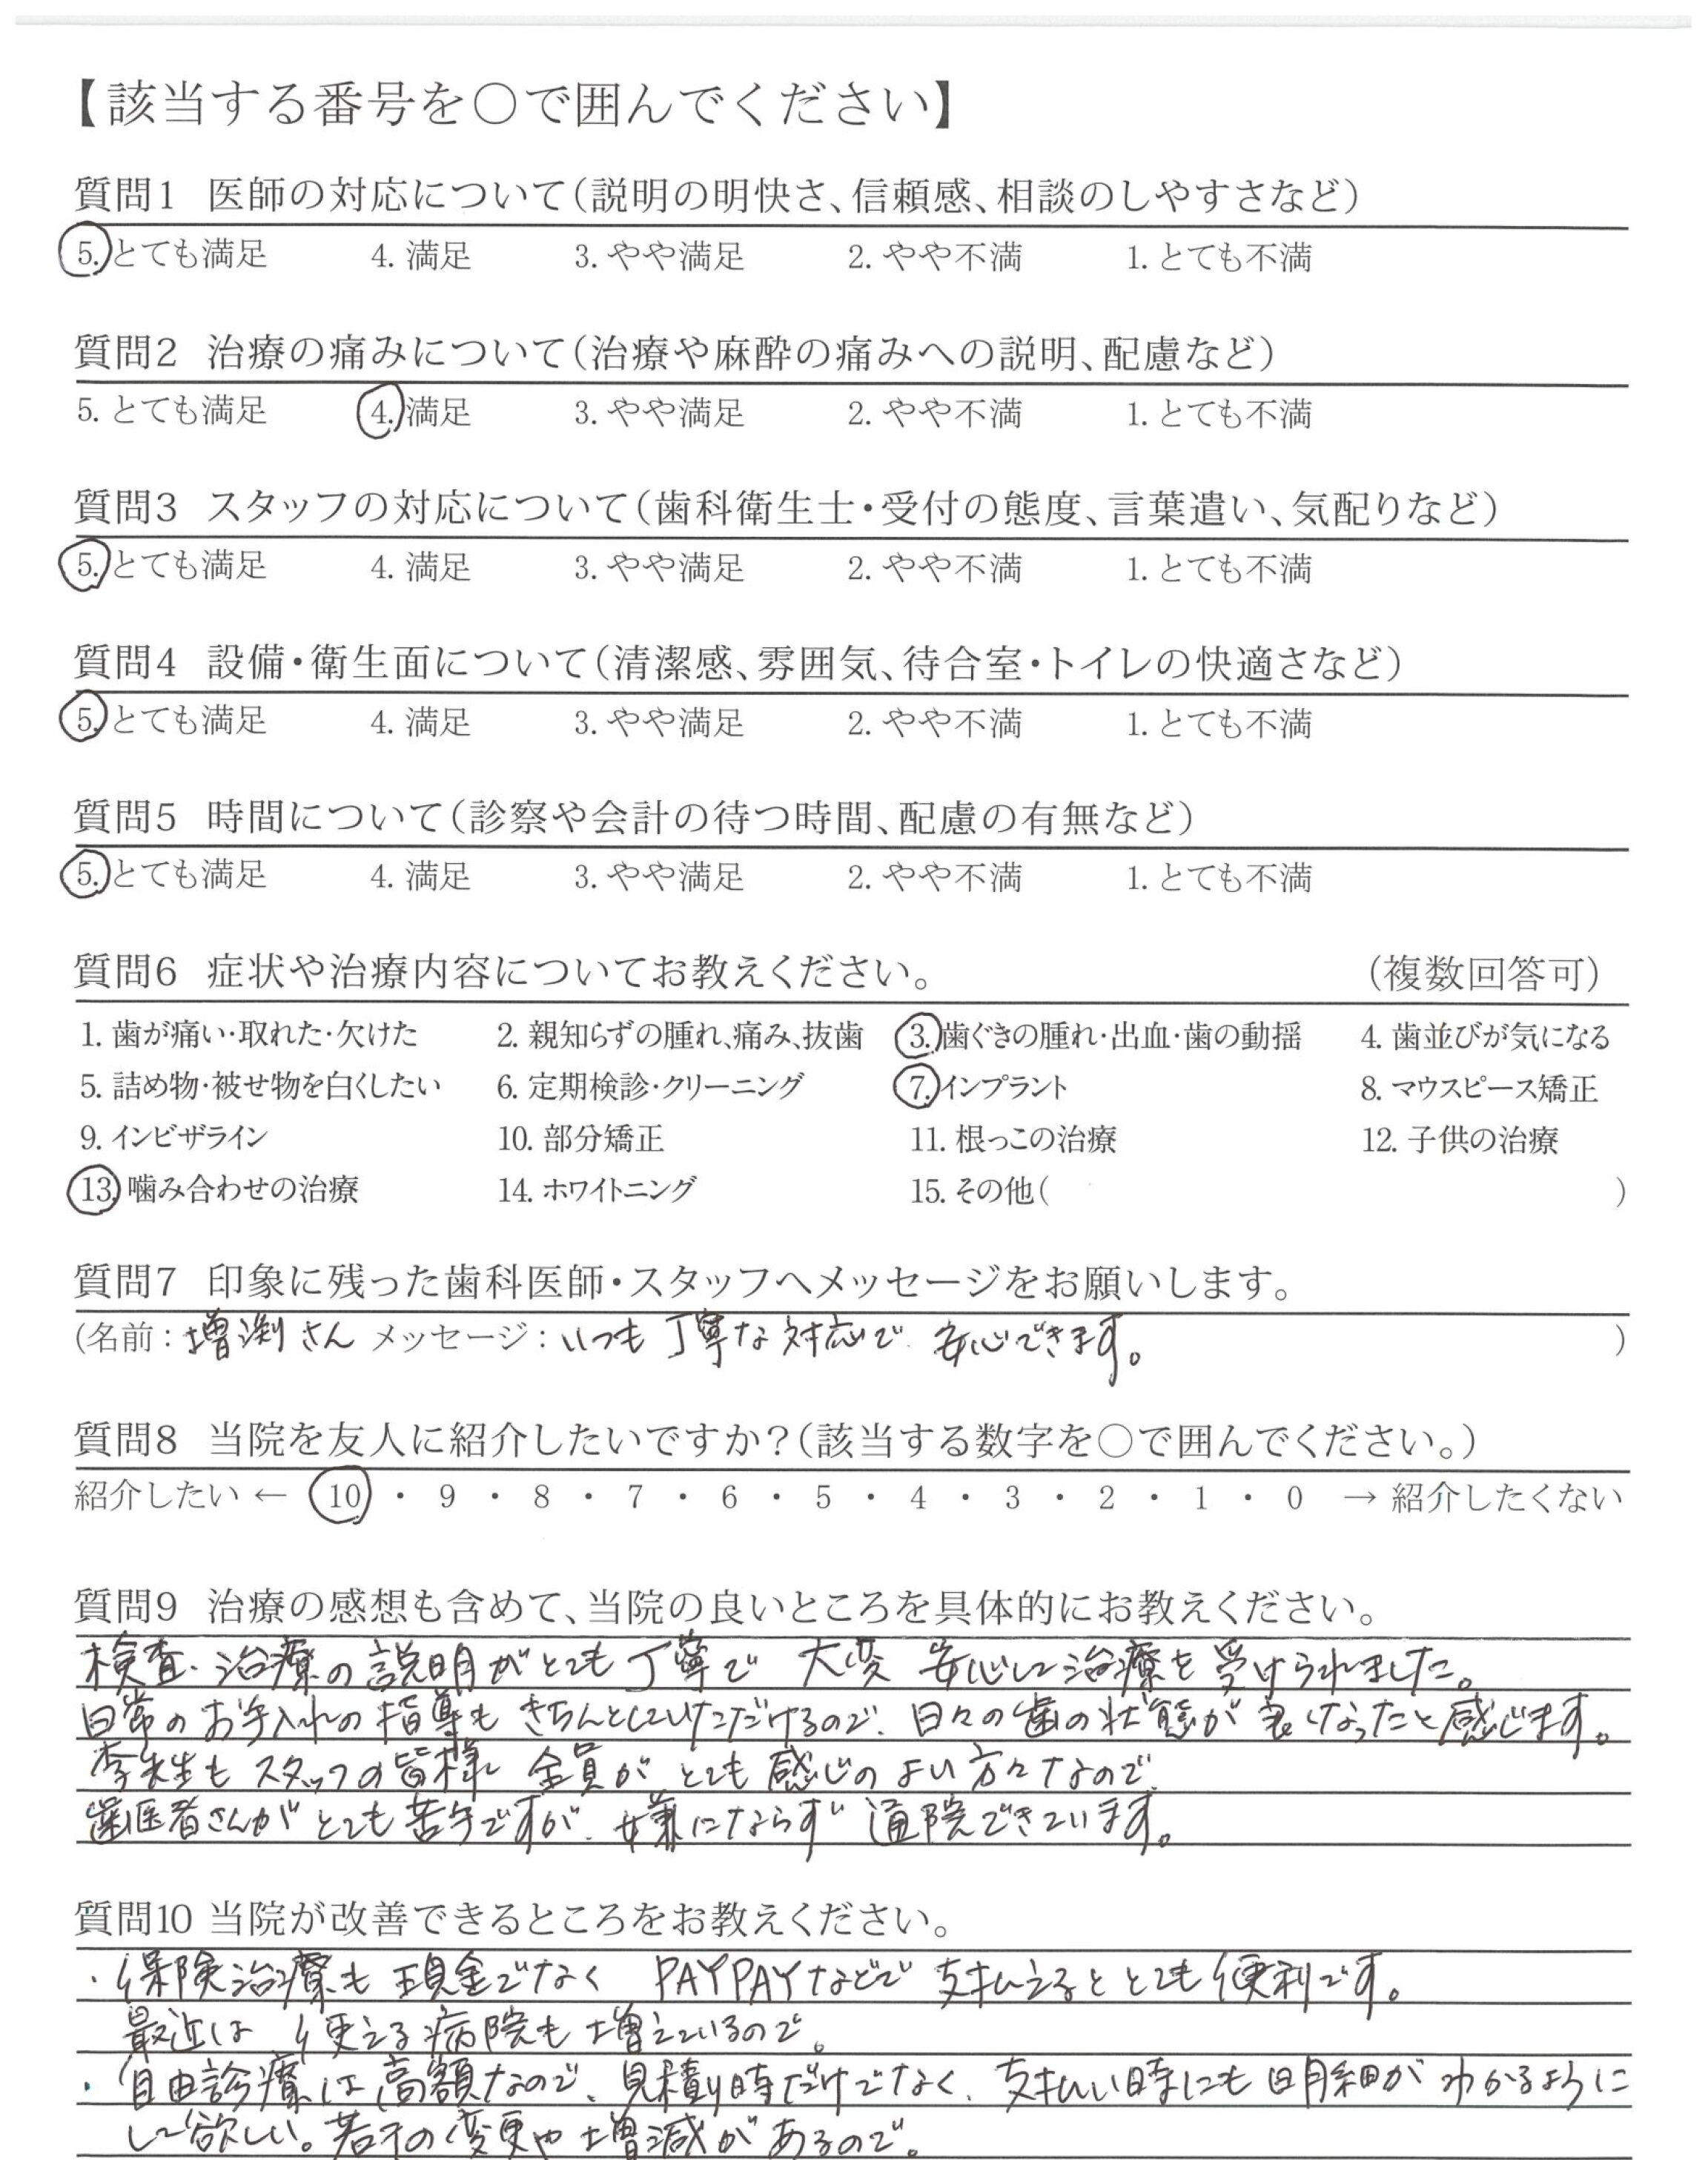 【該当する番号を○で囲んでください】
質問1 医師の対応について(説明の明快さ、信頼感、相談のしやすさなど)
5. とても満足 4. 満足 3. やや満足 2. やや不満 1. とても不満
質問2 治療の痛みについて(治療や麻酔の痛みへの説明、配慮など)
5. とても満足 4. 満足 3. やや満足 2. やや不満 1. とても不満
質問3 スタッフの対応について(歯科衛生士・受付の態度、言葉遣い、気配りなど)
5. とても満足 4. 満足 3. やや満足 2. やや不満 1. とても不満
質問4 設備・衛生面について(清潔感、雰囲気、待合室・トイレの快適さなど)
5. とても満足 4. 満足 3. やや満足 2. やや不満 1. とても不満
質問5 時間について(診察や会計の待つ時間、配慮の有無など)
5. とても満足 4. 満足 3. やや満足 2. やや不満 1. とても不満
質問6 症状や治療内容についてお教えください。 (複数回答可)
1. 歯が痛い・取れた・欠けた 2. 親知らずの腫れ、痛み、抜歯 3. 歯ぐきの腫れ・出血・歯の動揺 4. 歯並びが気になる
5. 詰め物・被せ物を白くしたい 6. 定期検診・クリーニング 7. インプラント 8. マウスピース矯正
9. インビザライン 10. 部分矯正 11. 根っこの治療 12. 子供の治療
13. 噛み合わせの治療 14. ホワイトニング 15. その他( )
質問7 印象に残った歯科医師・スタッフへメッセージをお願いします。
(名前:増渕さん メッセージ:いつも丁寧な対応で 安心できます。 )
質問8 当院を友人に紹介したいですか?(該当する数字を○で囲んでください。)
紹介したい ← 10 ・ 9 ・ 8 ・ 7 ・ 6 ・ 5 ・ 4 ・ 3 ・ 2 ・ 1 ・ 0 → 紹介したくない
質問9 治療の感想も含めて、当院の良いところを具体的にお教えください。
検査、治療の説明がとても丁寧で 大変 安心して治療を受けられました。
日常のお手入れの指導もきちんとしていただけるので、日々の歯の状態が良くなったと感じます。
李先生もスタッフの皆様 全員が とても感じのよい方々なので、
歯医者さんがとても苦手ですが、嫌にならず 通院できています。
質問10 当院が改善できるところをお教えください。
・保険治療も 現金でなく PAYPAYなどで 支払えるととても便利です。
最近は 使える病院も増えているので。
・自由診療は高額なので、見積り時だけでなく、支払い時にも明細がわかるように
して欲しい。若干の変更や増減があるので。